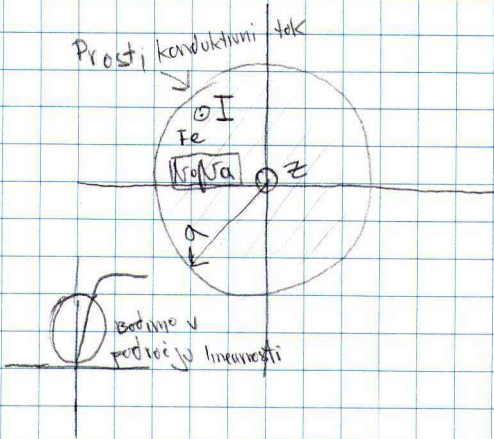 Prosti konduktivni tok
⊙ I
Fe
z
a
Bodimo v
področju linearnosti